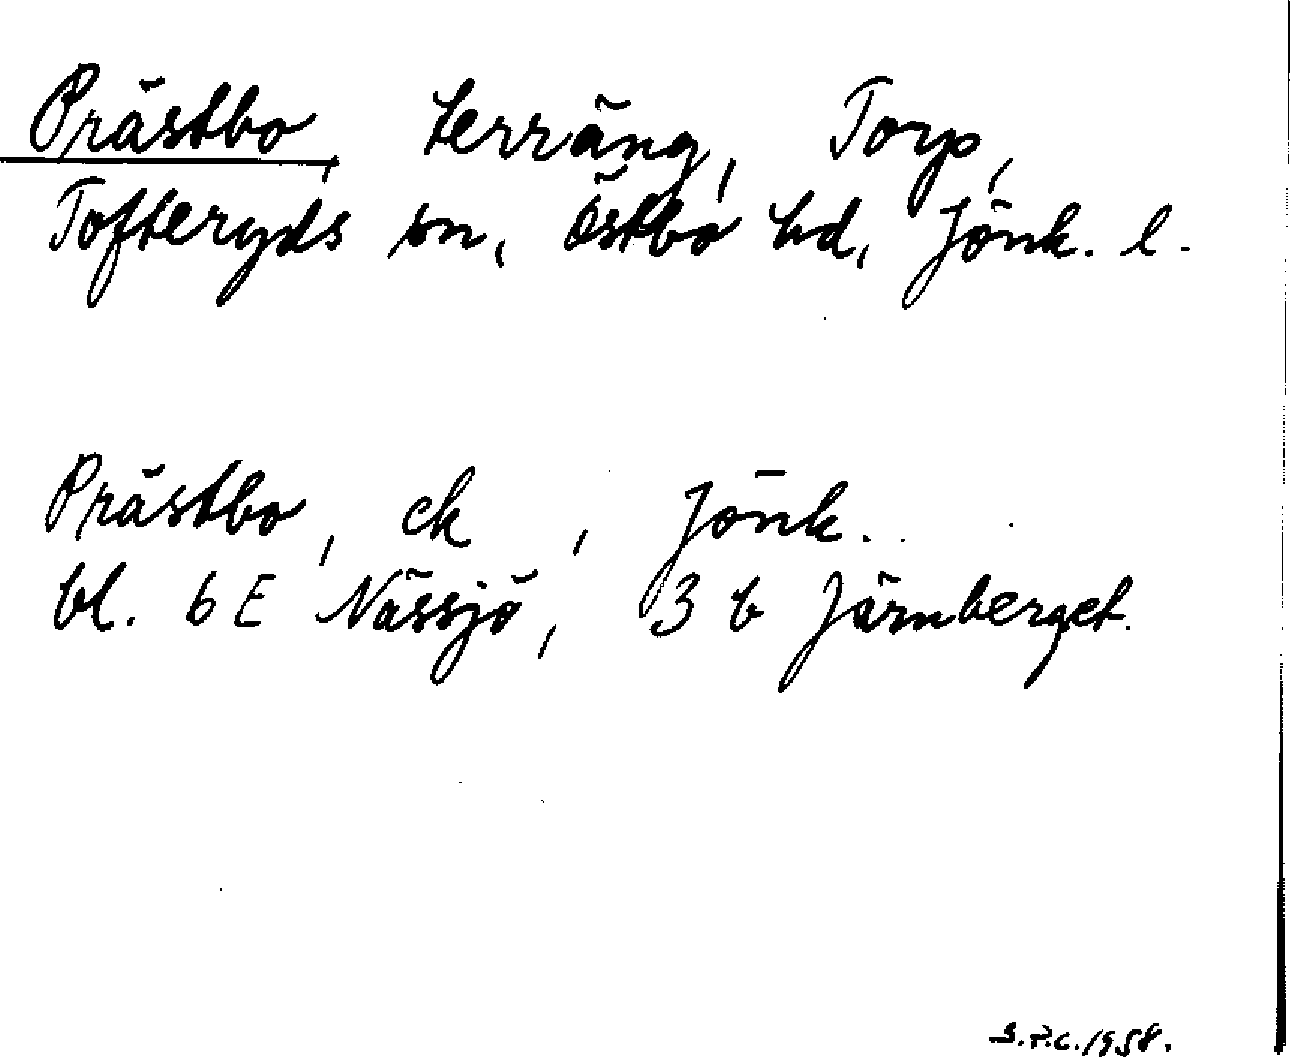 Prästbo, terräng, Torp,
Tofteryds sn, Östbo hd, Jönk. l.
Prästbo, ek , Jönk.
bl. 6 E Nässjö, 3 b Järnberget.
S.P.C. 1958.